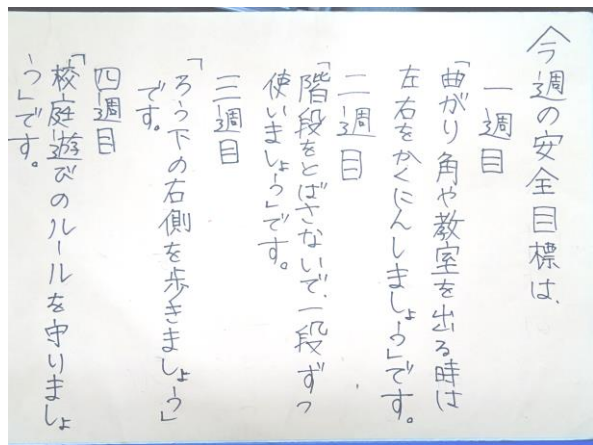 今週の安全目標は、
一週目
「曲がり角や教室を出る時は
左右をかくにんしましょう」です。
二週目
「階段をとばさないで、一段ずつ
使いましょう」です。
三週目
「ろう下の右側を歩きましょう」
です。
四週目
「校庭遊びのルールを守りましょ
う」です。